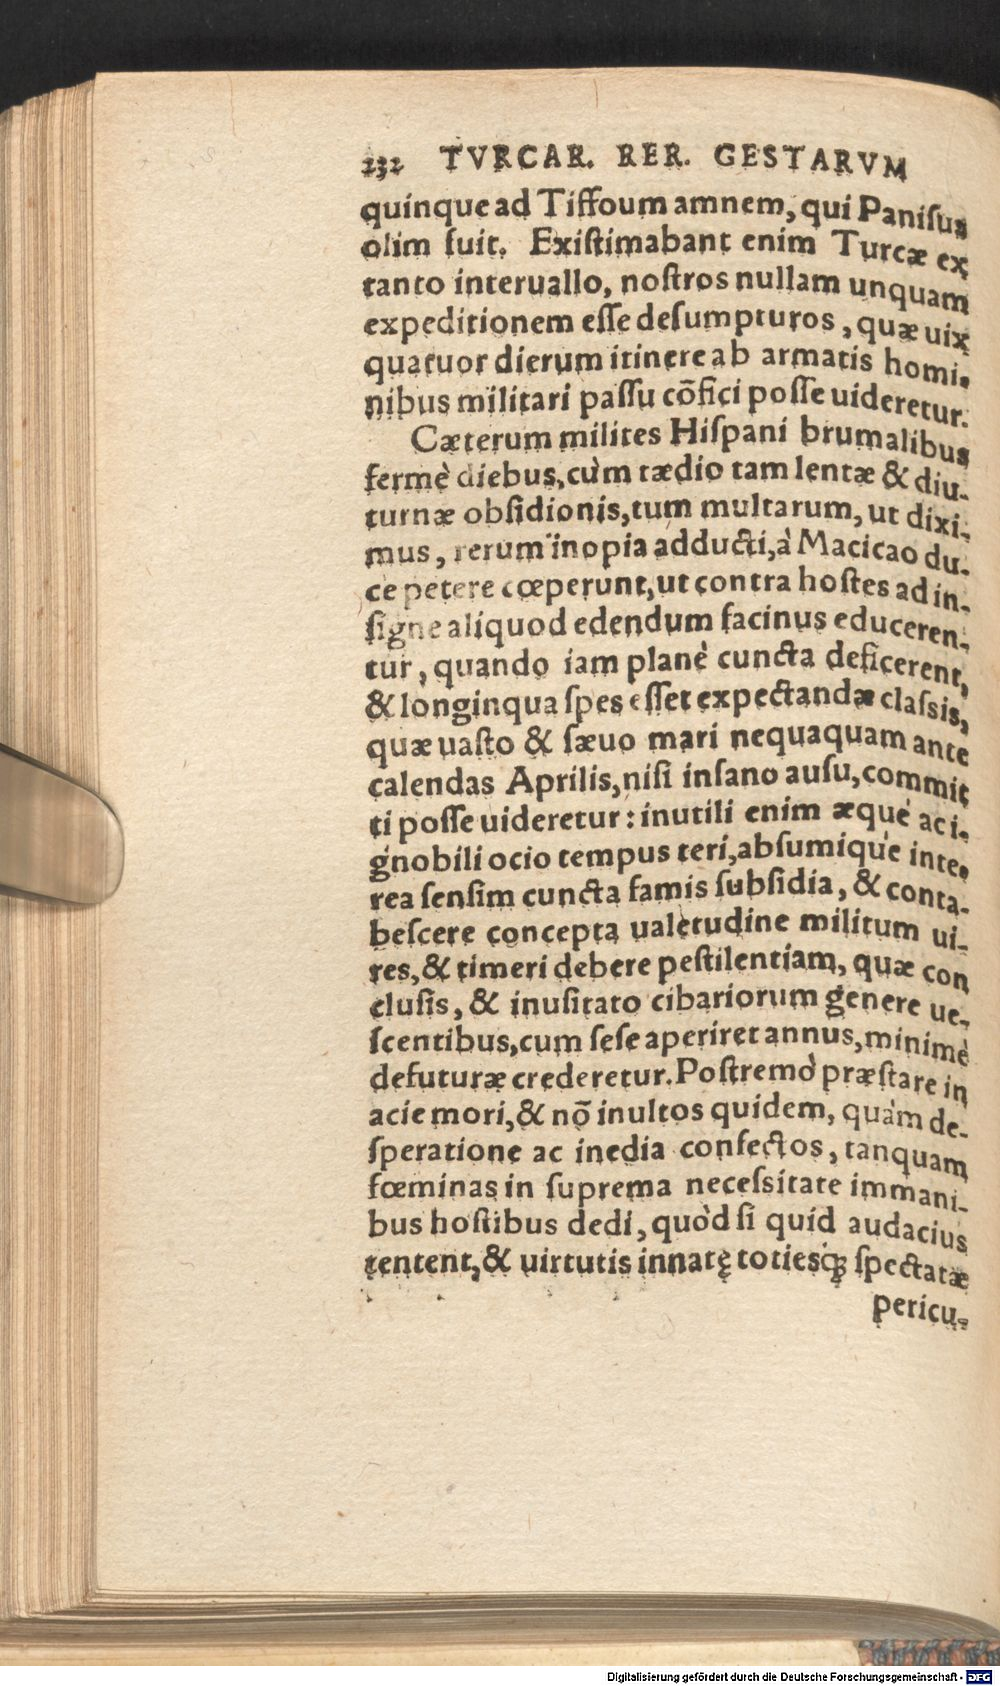 232 TVRCAR. RER. GESTARVM
quinque ad Tiffoum amnem, qui Paniſus
olim fuit. Exiſtimabant enim Turcæ ex
tanto interuallo, noſtros nullam unquam
expeditionem eſſe deſumpturos, quæ uix
quatuor dierum itinere ab armatis homi-
nibus militari paſſu cōfici poſſe uideretur.
Cæterum milites Hiſpani brumalibus
fermè diebus, cùm tædio tam lentæ & diu-
turnæ obſidionis, tum multarum, ut dixi-
mus, rerum inopia adducti, à Macicao du-
ce petere cœperunt, ut contra hoſtes ad in-
ſigne aliquod edendum facinus educeren-
tur, quando iam planè cuncta deficerent,
& longinqua ſpes eſſet expectandæ claſsis,
quæ uaſto & ſæuo mari nequaquam ante
calendas Aprilis, niſi inſano auſu, commit
ti poſſe uideretur: inutili enim æquè ac i-
gnobili ocio tempus teri, abſumiqúe inte-
rea ſenſim cuncta famis ſubſidia, & conta-
beſcere concepta ualetudine militum ui-
res, & timeri debere peſtilentiam, quæ con
cluſis, & inuſitato cibariorum genere ue-
ſcentibus, cum ſeſe aperiret annus, minimè
defuturæ crederetur. Poſtremò præſtare in
acie mori, & nō inultos quidem, quàm de-
ſperatione ac inedia confectos, tanquam
fœminas in ſuprema neceſsitate immani-
bus hoſtibus dedi, quòd ſi quid audacius
tentent, & uirtutis innatę totiesq́ꝫ ſpectatæ
pericu-
Digitalisierung gefördert durch die Deutsche Forschungsgemeinschaft - DFG